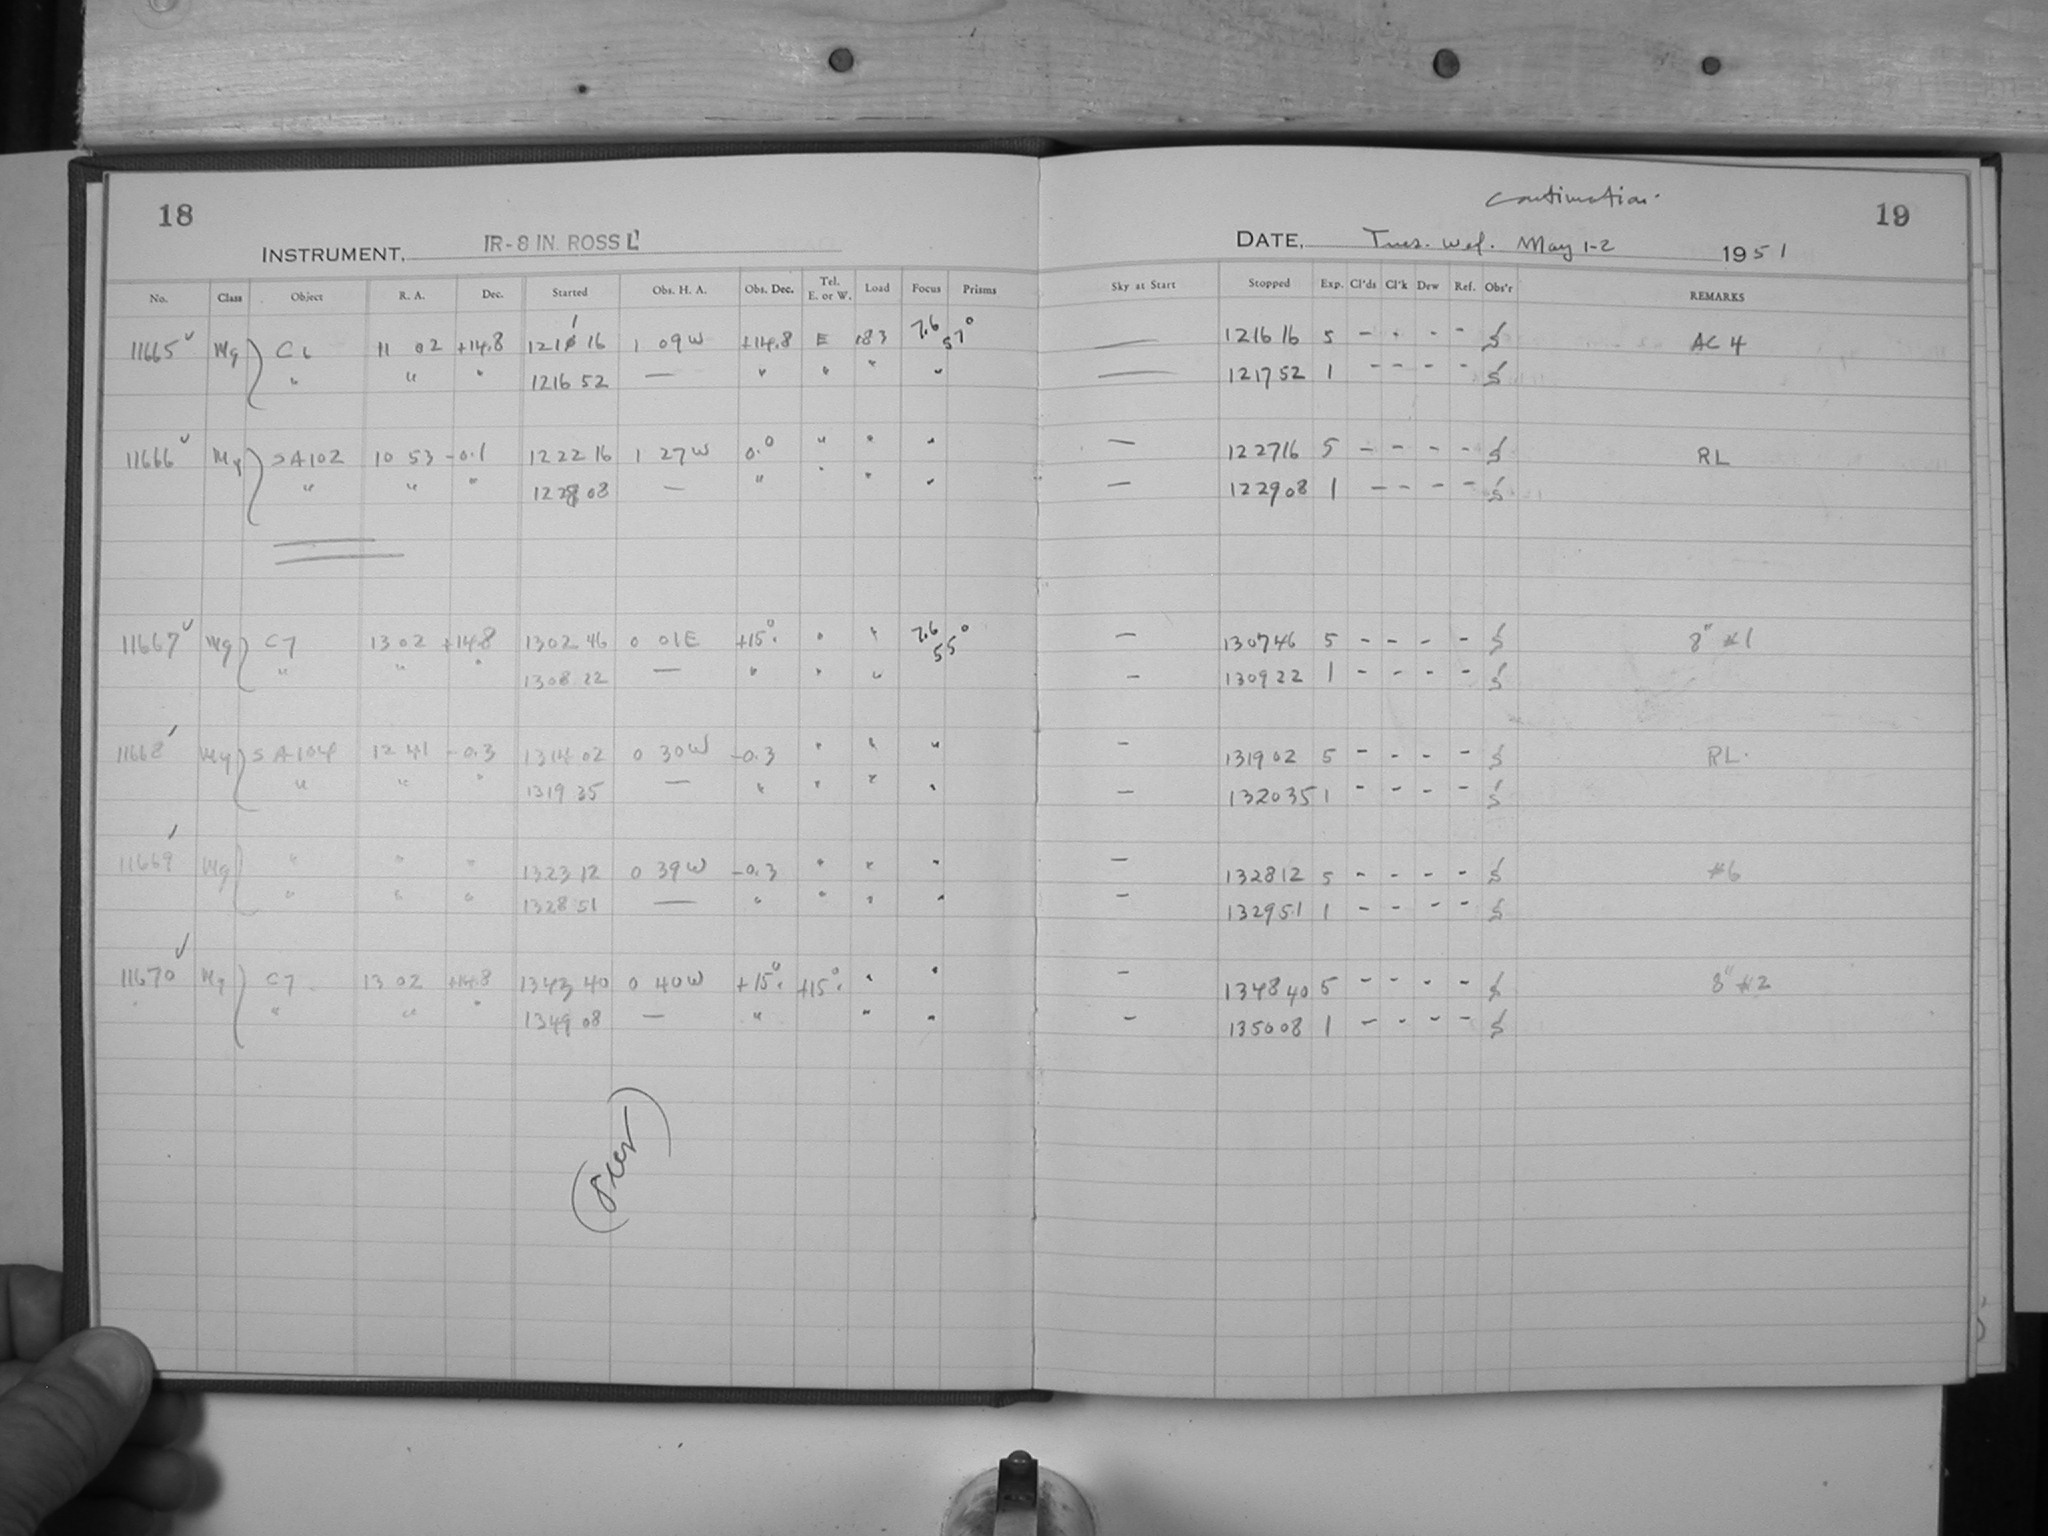 18
INSTRUMENT, IR-8 IN. ROSS L
No. Class Object R. A. Dec. Started Obs. H. A. Obs. Dec. Tel. E. or W. Load Focus Prisms
11665 ✓ Mg C6 11 02 +14.8 1211 16 1 09 W +14.8 E 183 7.6 57°
" " " 1216 52 — " " " "
11666 ✓ Mg SA102 10 53 -0.1 1222 16 1 27 W 0.0 " " "
" " " 1228 08 — " " " "
11667 ✓ Mg C7 13 02 +14.8 1302 46 0 01 E +15°. " " 7.6 55°
" " " 1308 22 — " " "
11668 Mg SA104 12 41 -0.3 1314 02 0 30 W -0.3 " " "
" " " 1319 35 — " " " "
11669 Mg " " " 1323 12 0 39 W -0.3 " " "
" " " 1328 51 — " " " "
11670 ✓ Mg C7 13 02 +14.8 1343 40 0 40 W +15°. +15°. " "
" " " 1349 08 — " " "
(over)
Continuation.
19
DATE, Tues. Wed. May 1-2 1951
Sky at Start Stopped Exp. Cl'ds Cl'k Dew Ref. Obs'r REMARKS
— 1216 16 5 - - - - S AC 4
— 1217 52 1 - - - - S
— 1227 16 5 - - - - S RL
— 1229 08 1 - - - - S
— 1307 46 5 - - - - S 8" #1
— 1309 22 1 - - - - S
— 1319 02 5 - - - - S RL.
— 1320 35 1 - - - - S
— 1328 12 5 - - - - S #6
— 1329 51 1 - - - - S
— 1348 40 5 - - - - S 8" #2
— 1350 08 1 - - - - S